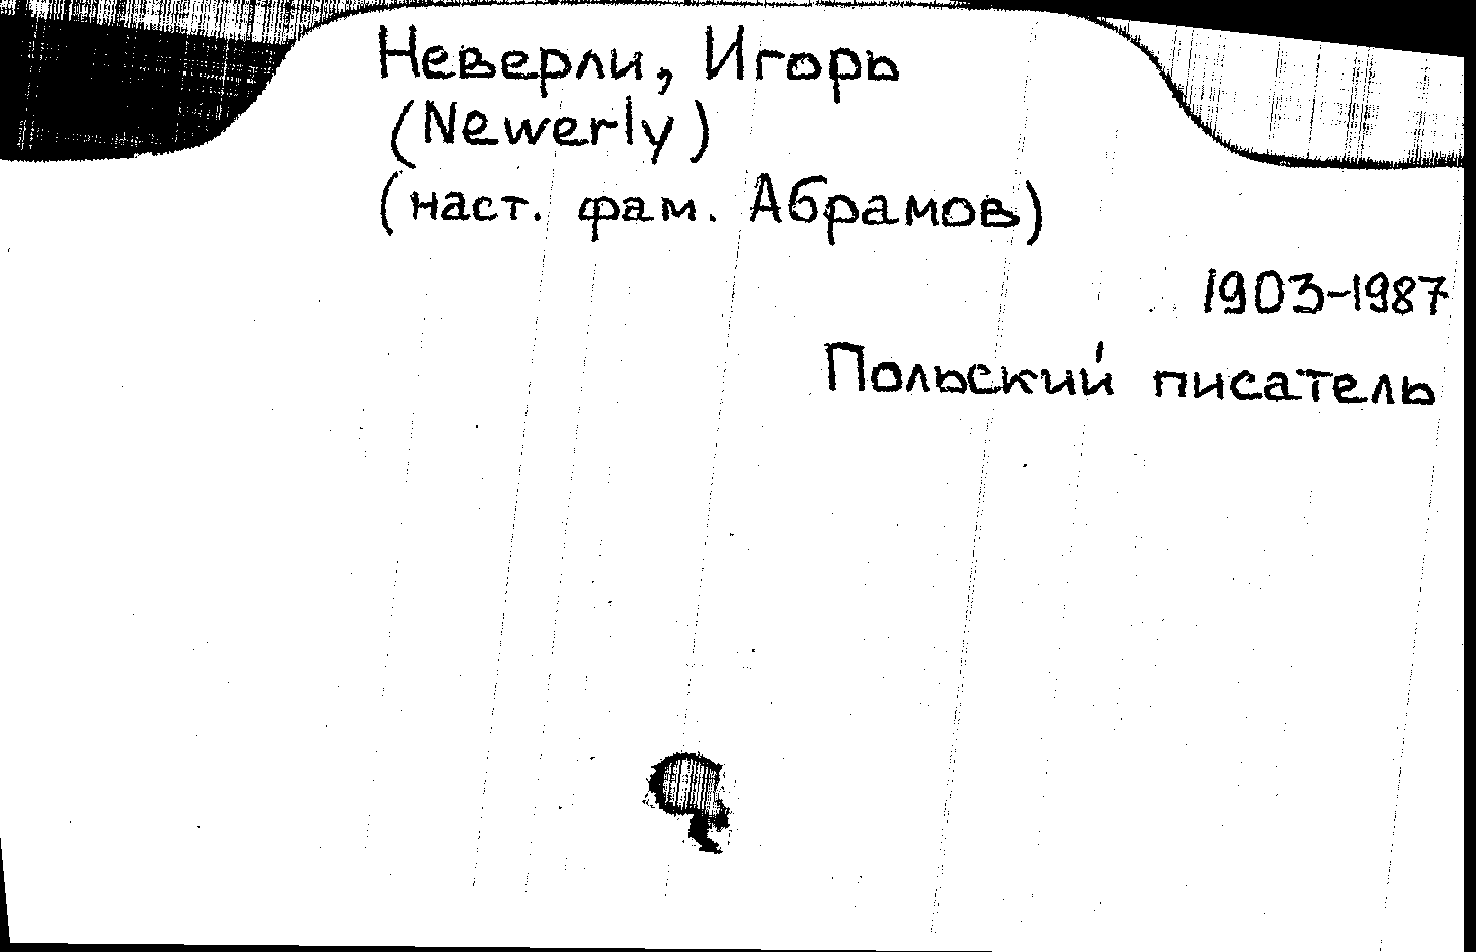 Неверли, Игорь
(Newerly)
(наст. фам. Абрамов)
1903-1987
Польский писатель